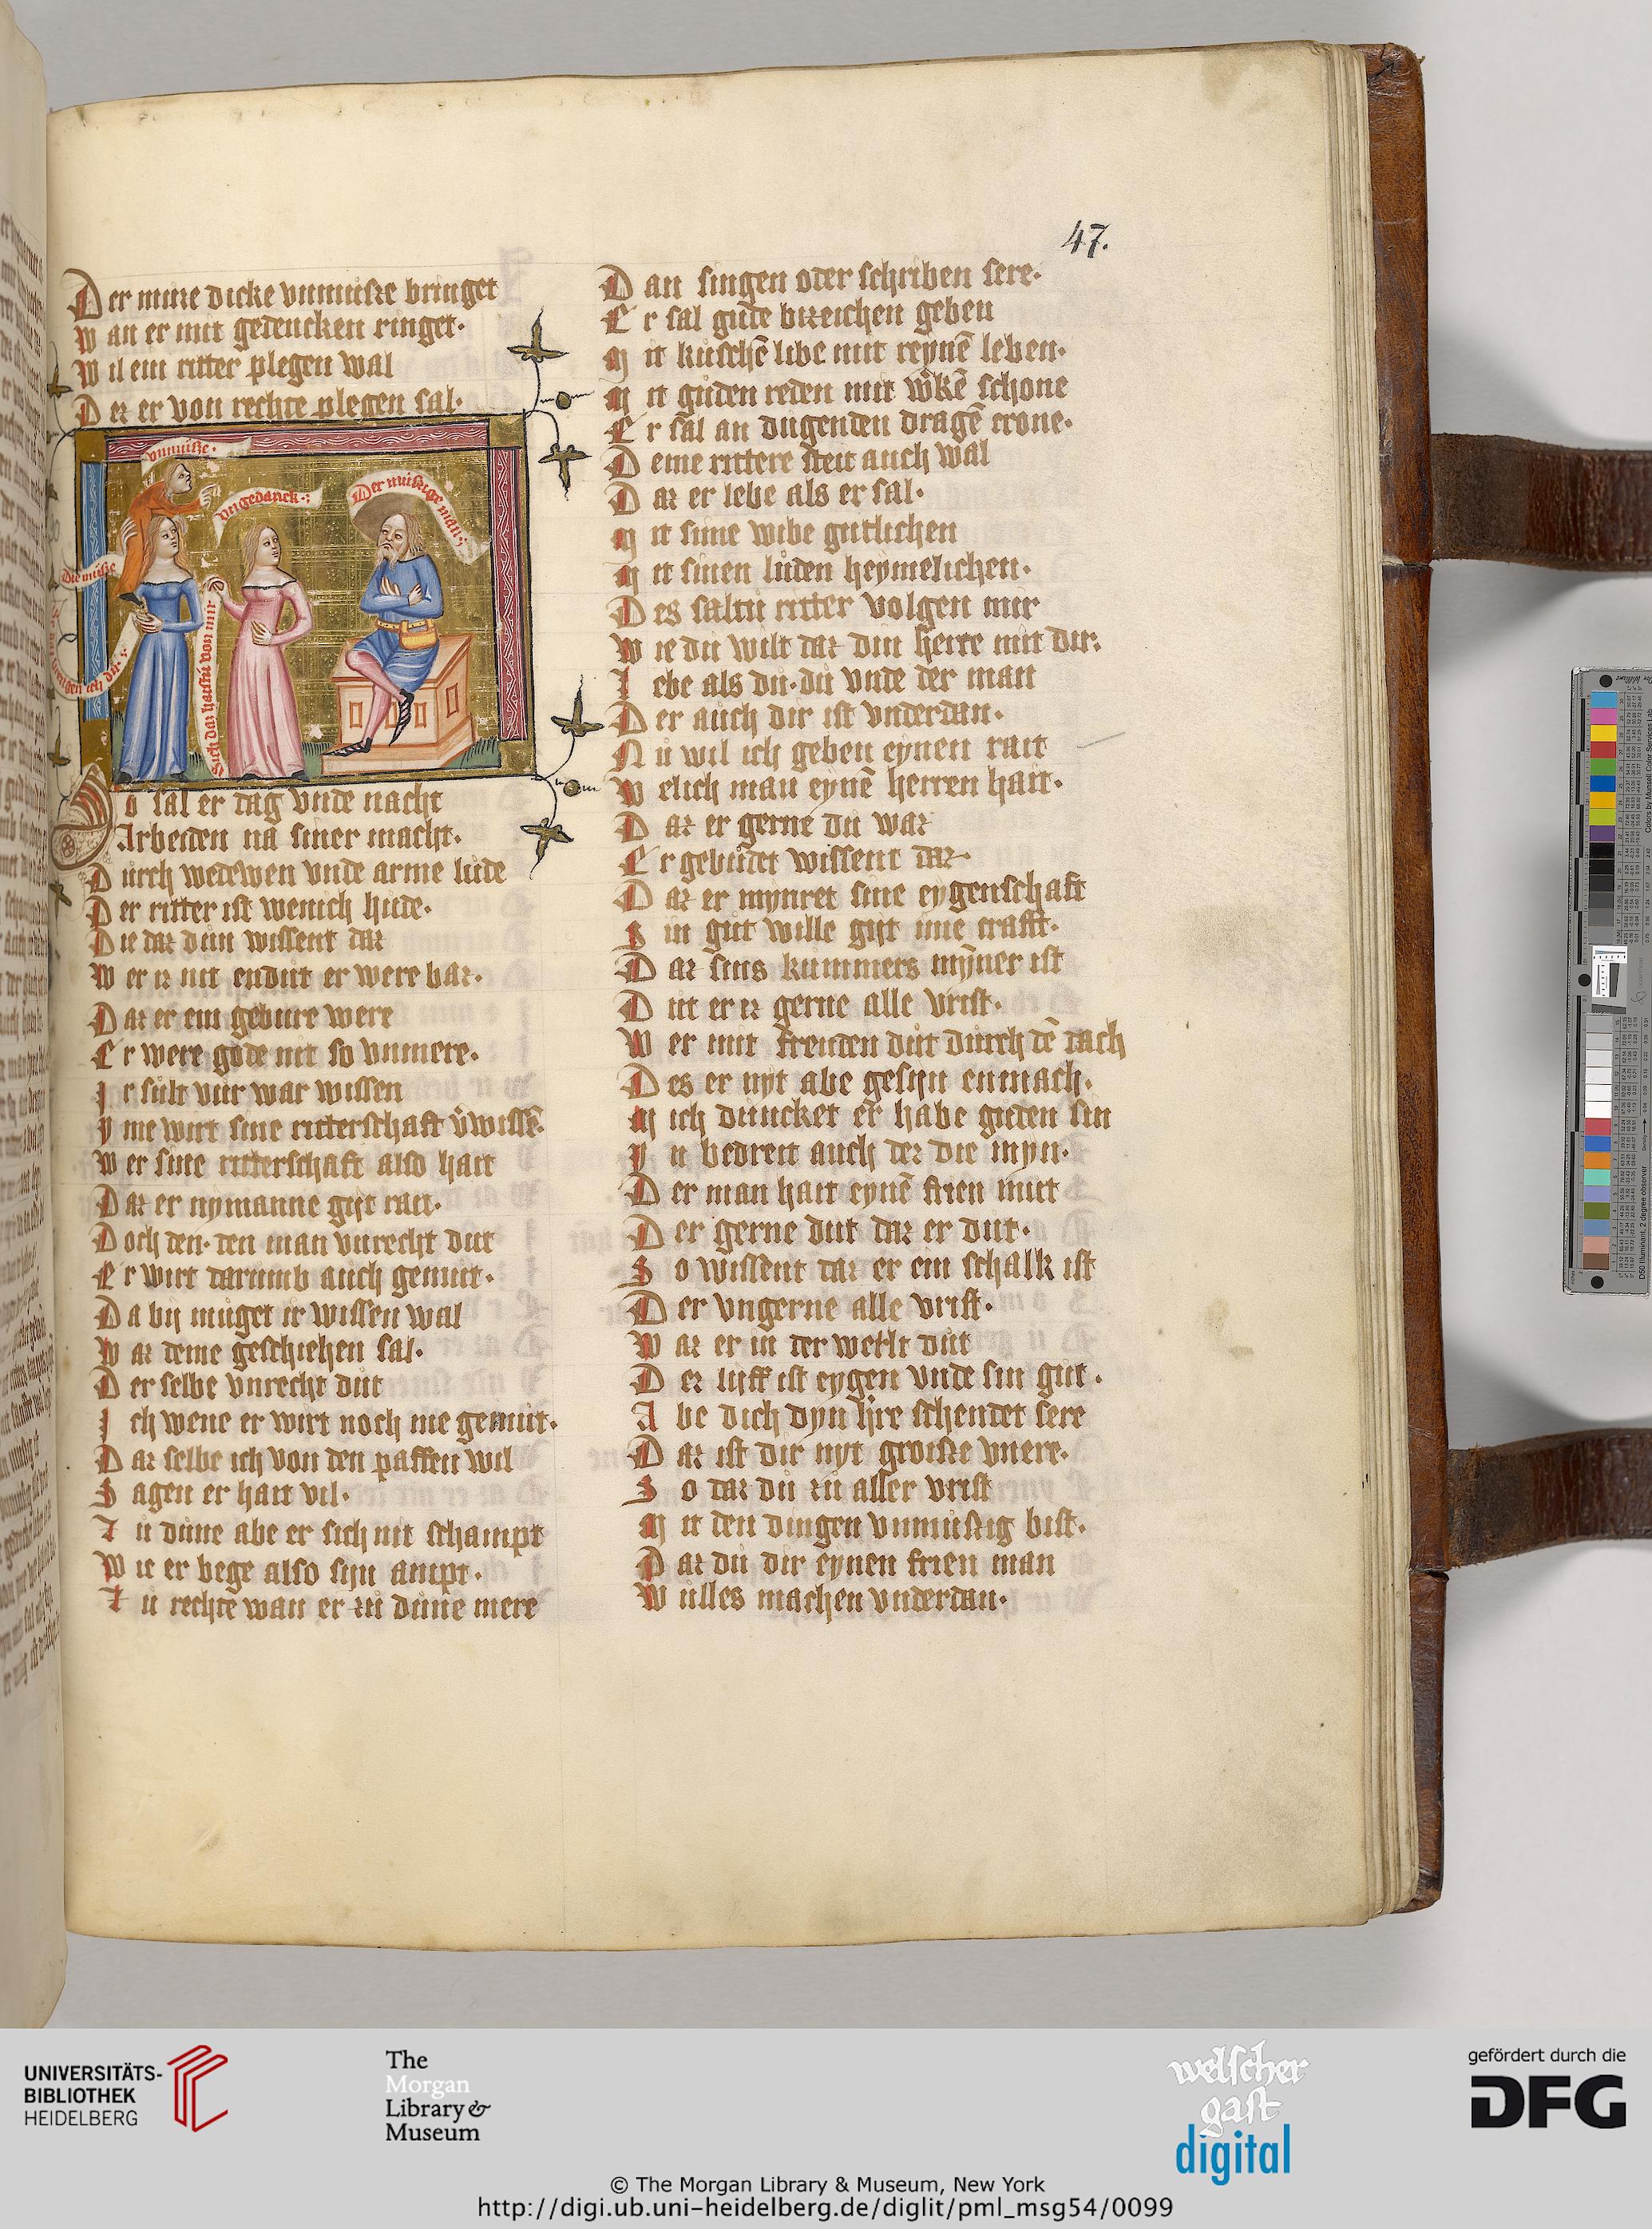 47.
Der mirre dicke vnmuſze bringet
Wan er mit gedencken ringet.
Wil ein ritter plegen wal
Dez er von rechte plegen ſal.
vnmuſze.
vngedanck.
Der muſzige man.
Die muſze
Sich daz haſtu von mir
So ſal er dag vnde nacht
Arbeiden na ſiner macht.
Durch wedewen vnde arme lude
Der ritter iſt wenich hude.
Die daz dun wiſſent daz
Wer iz nit endut er were baz.
Daz er ein gebure were
Er were gode nit ſo vnmere.
Ir ſult vur war wiſſen
Yme wirt ſine ritterſchaft v̾wiſſē.
Wer ſine ritterſchaft alſo hait
Daz er nymanne gijt rait.
Doch den. den man vnrecht dut
Er wirt darumb auch gemut.
Da bij muget ir wiſſen wal
Waz deme geſchiehen ſal.
Der ſelbe vnrecht dut
Ich wene er wirt noch me gemut.
Daz ſelbe ich von den paffen wil
Sagen er hait vil.
Zu dune abe er ſich nit ſchampt
Wie er bege alſo ſijn ampt.
Zu rechte wan er zu dune mere
Dan ſingen oder ſchriben ſere.
Er ſal gude bizeichen geben
Mit kuſchē libe mit reynē leben.
Mit guden reden mit w̾kē ſchone
Er ſal an dugenden dragē crone.
Deme rittere ſteit auch wal
Daz er lebe als er ſal.
Mit ſime wibe gutlichen
Mit ſinen luden heymelichen.
Des ſaltu ritter volgen mir
Wie du wilt daz din herre mit dir.
Lebe als du. du vnde der man
Der auch dir iſt vnderdan.
Nu wil ich geben eynen rait
Welich man eynē herren hait.
Daz er gerne du waz
Er gebudet wiſſent daz
Daz er mynret ſine eygenſchaft
Sin gut wille gijt ime crafft.
Daz ſins kummers myner iſt
Dut er iz gerne alle vriſt.
Wer mit freuden dut durch dē dach
Des er nyt abe geſijn enmach.
Mich duncket er habe guden ſin
Yn bedreit auch dez die myn.
Der man hait eynē frien mut
Der gerne dut daz er dut.
So wiſſent daz er ein ſchalk iſt
Der vngerne alle vriſt.
Waz er in der werlt dut
Dez lijff iſt eygen vnde ſin gut.
Abe dich dyn h̾re ſchendet ſere
Daz iſt dir nyt groiſte vnere.
So daz du zu aller vriſt
Mit den dingen vnmuſzig biſt.
Daz du dir eynen frien man
Wulles machen vnderdan.
UNIVERSITÄTS-
BIBLIOTHEK
HEIDELBERG
The
Morgan
Library &
Museum
welscher
gast
digital
gefördert durch die
DFG
© The Morgan Library & Museum, New York
http://digi.ub.uni-heidelberg.de/diglit/pml_msg54/0099